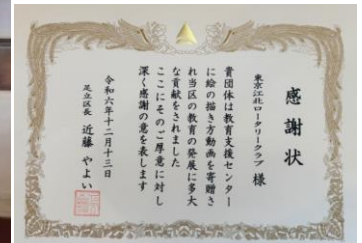 感謝状
東京江北ロータリークラブ 様
貴団体は教育支援センター
に絵の描き方動画を寄贈さ
れ当区の教育の発展に多大
な貢献をされました
ここにそのご厚意に対し
深く感謝の意を表します
令和六年十二月十三日
足立区長 近藤 やよい